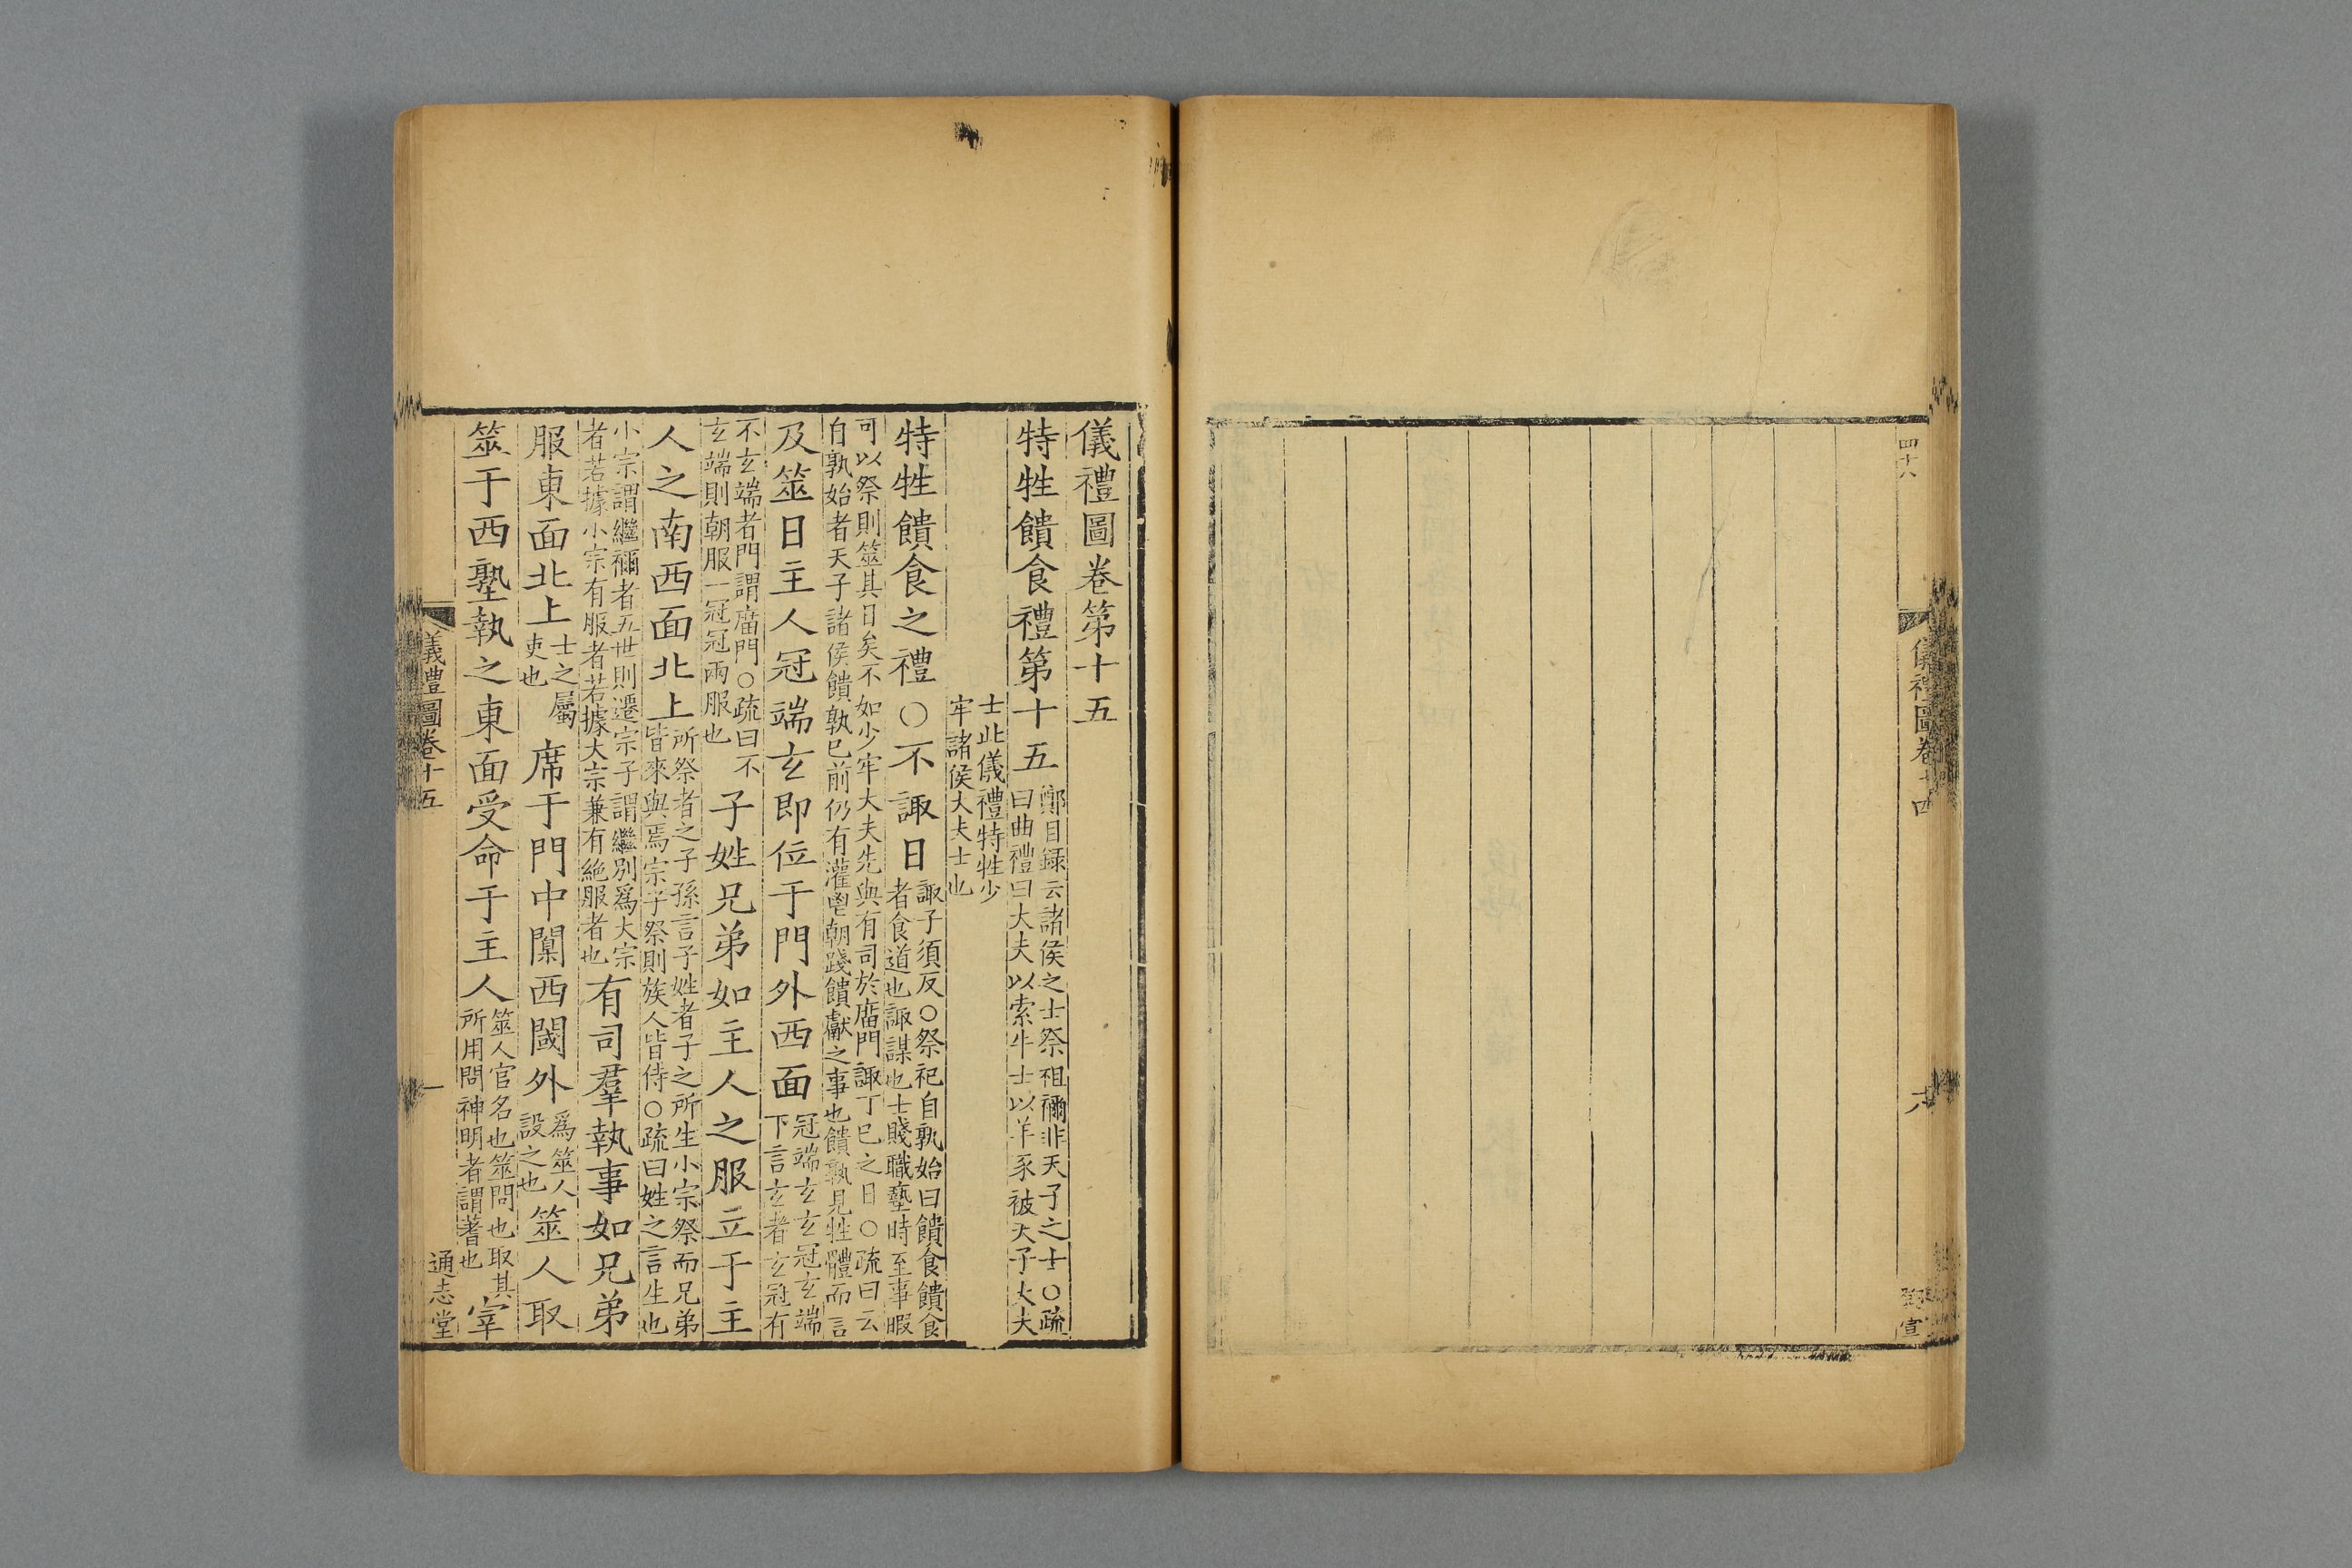 四十八
儀禮圖卷十四
儀禮圖卷第十五
特牲饋食禮第十五鄭目録云諸侯之士祭祖禰非天子之士○疏曰曲禮曰大夫以索牛士以羊豕彼天子大夫
士此儀禮特牲少牢諸侯大夫士也
特牲饋食之禮○不諏日諏子須反○祭祀自孰始曰饋食饋食者食道也諏謀也士賤職䙝時至事暇
可以祭則筮其日矣不如少牢大夫先與有司於庿門諏丁巳之日○疏曰云自孰始者天子諸侯饋孰巳前仍有灌鬯朝踐饋獻之事也饋孰見牲體而言
及筮日主人冠端玄即位于門外西面冠端玄玄冠玄端下言玄者玄冠有
不玄端者門謂庿門○疏曰不玄端則朝服一冠冠兩服也子姓兄弟如主人之服立于主
人之南西面北上所祭者之子孫言子姓者子之所生小宗祭而兄弟皆來與焉宗子祭則族人皆侍○疏曰姓之言生也
小宗謂繼禰者五世則遷宗子謂繼別爲大宗者若據小宗有服者若據大宗兼有絶服者也有司羣執事如兄弟
服東面北上士之屬吏也席于門中闑西閾外爲筮人設之也筮人取
筮于西塾執之東面受命于主人筮人官名也筮問也取其所用問神明者謂蓍也宰
儀禮圖卷十五
一
通志堂